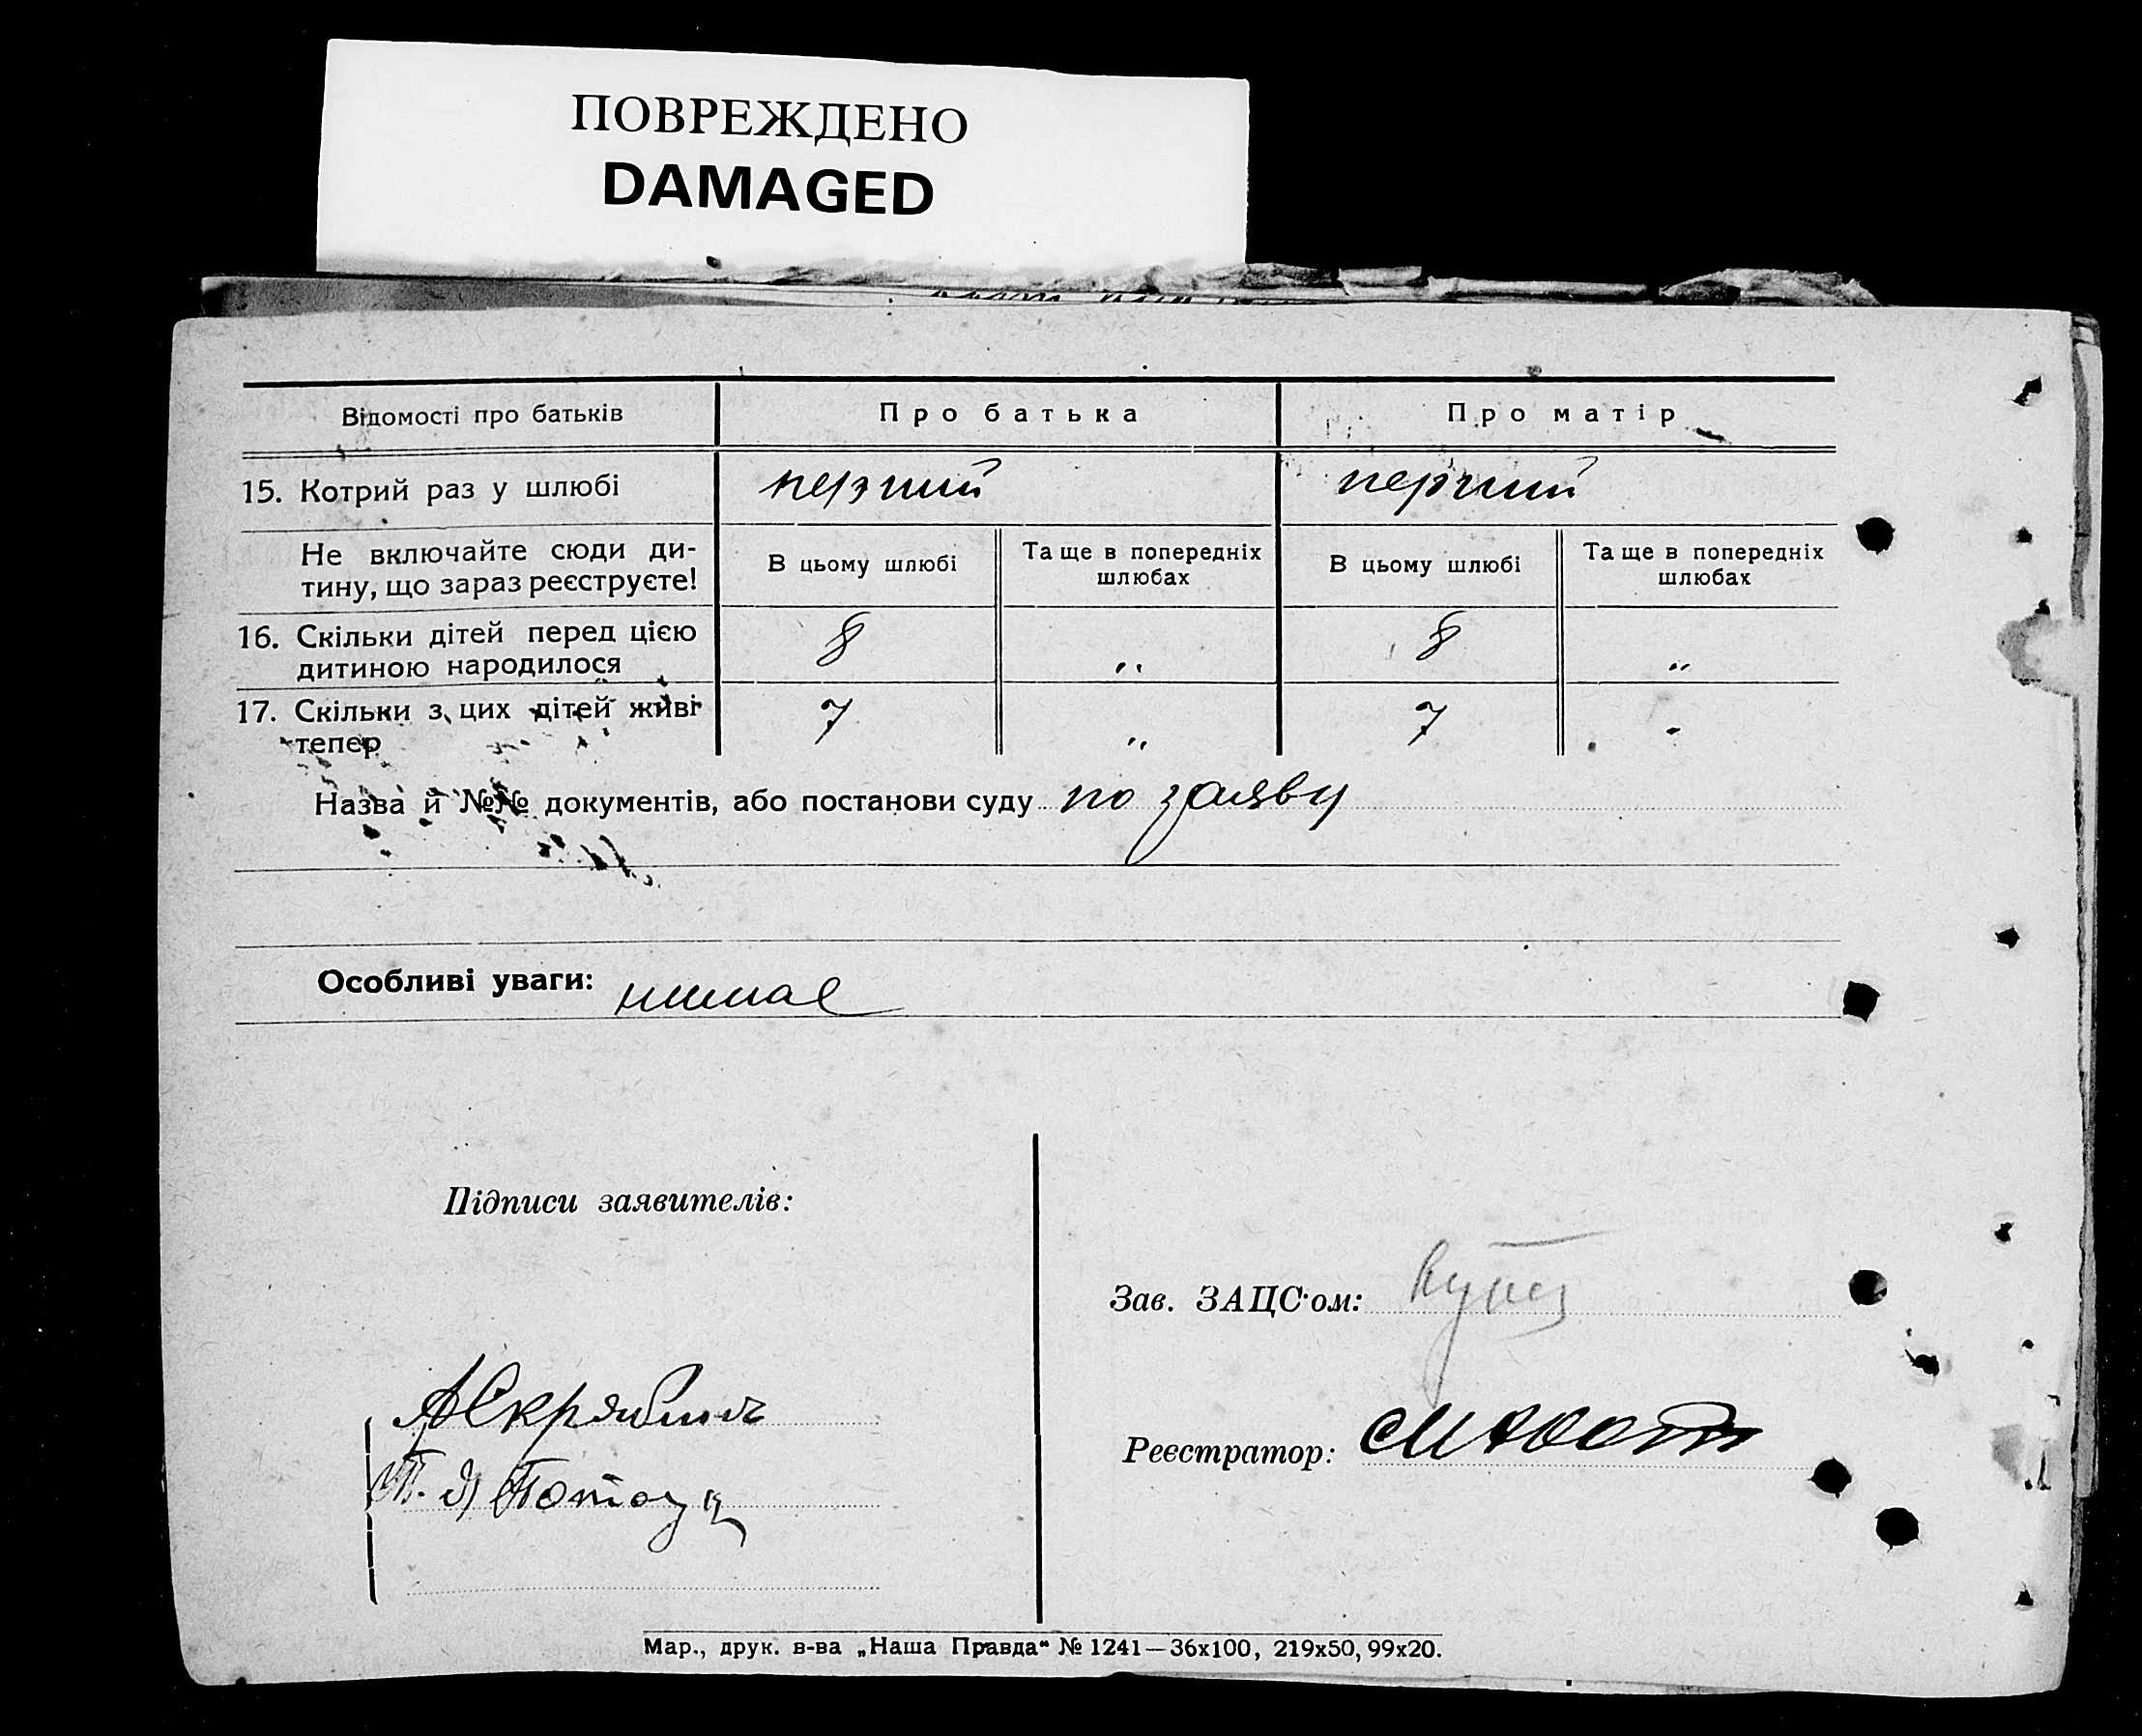 ПОВРЕЖДЕНО
DAMAGED
Відомості про батьків
Про батька
Про матір
15. Котрий раз у шлюбі
перший
перший
Не включайте сюди ди-
тину, що зараз реєструєте!
В цьому шлюбі
Та ще в попередніх
шлюбах
В цьому шлюбі
Та ще в попередніх
шлюбах
16. Скільки дітей перед цією
дитиною народилося
8
„
8
„
17. Скільки з цих дітей живі
тепер
7
„
7
-
Назва й №№ документів, або постанови суду по заяву
Особливі уваги: нимає
Підписи заявителів:
Зав. ЗАЦС'ом:
АСкрябинъ
Реєстратор:
Мар., друк. в-ва „Наша Правда“ № 1241—36х100, 219х50, 99х20.